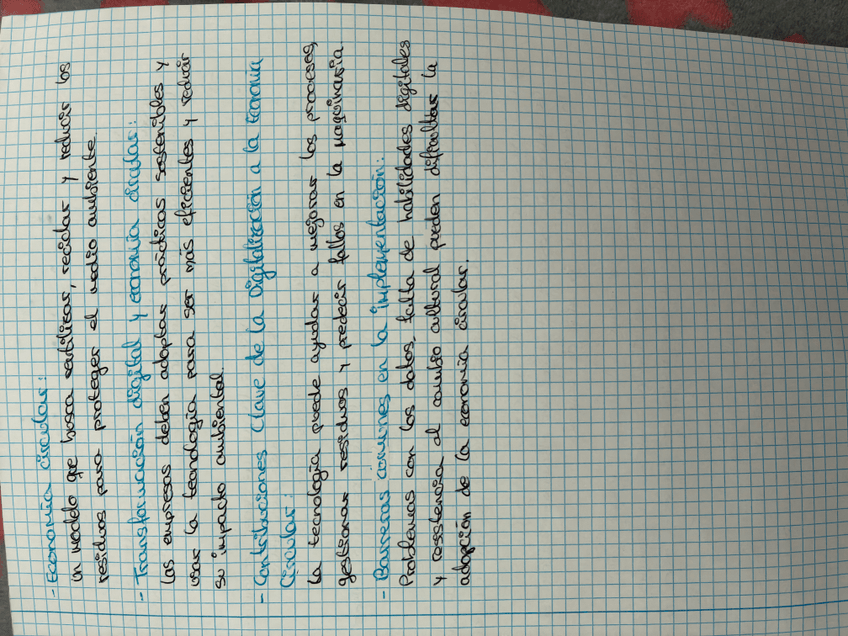 - Economía circular:
Un modelo que busca reutilizar, reciclar y reducir los
residuos para proteger el medio ambiente.
- Transformación digital y economía circular:
Las empresas deben adoptar prácticas sostenibles y
usar la tecnología para ser más eficientes y reducir
su impacto ambiental.
- Contribuciones Clave de la Digitalización a la Economía
Circular:
La tecnología puede ayudar a mejorar los procesos,
gestionar residuos y predecir fallos en la maquinaria
- Barreras comunes en la implementación:
Problemas con los datos, falta de habilidades digitales
y resistencia al cambio cultural pueden dificultar la
adopción de la economía circular.